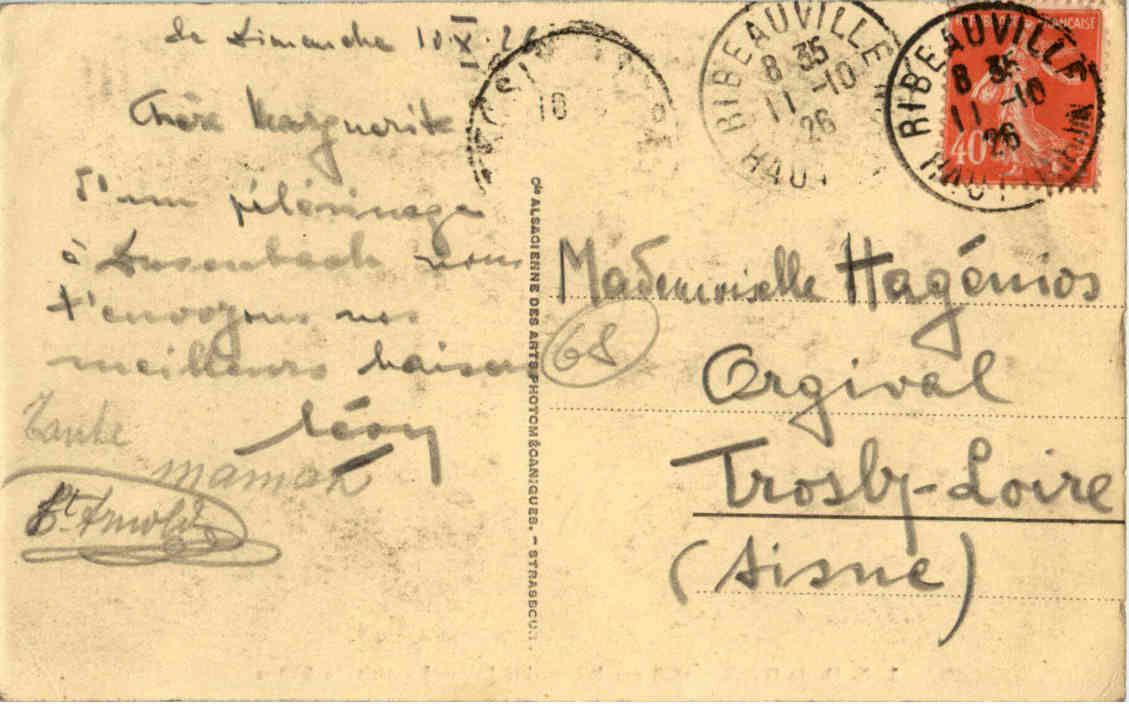 le Dimanche 10.X.26
Chère Marguerite
D'un pélérinage
à Dusenbach nous
t'envoyons nos
meilleurs baisers
Tante
Léon
maman
St Arnold
RIBEAUVILLE
8 35
11 -10
26
HAUT
RIBEAUVILLE
8 35
11 -10
26
HAUT-RHIN
FRANÇAISE
40
10
Cie ALSACIENNE DES ARTS PHOTOMÉCANIQUES. - STRASBOURG
Mademoiselle Hagénios
68
Orgival
Trosly-Loire
(Aisne)